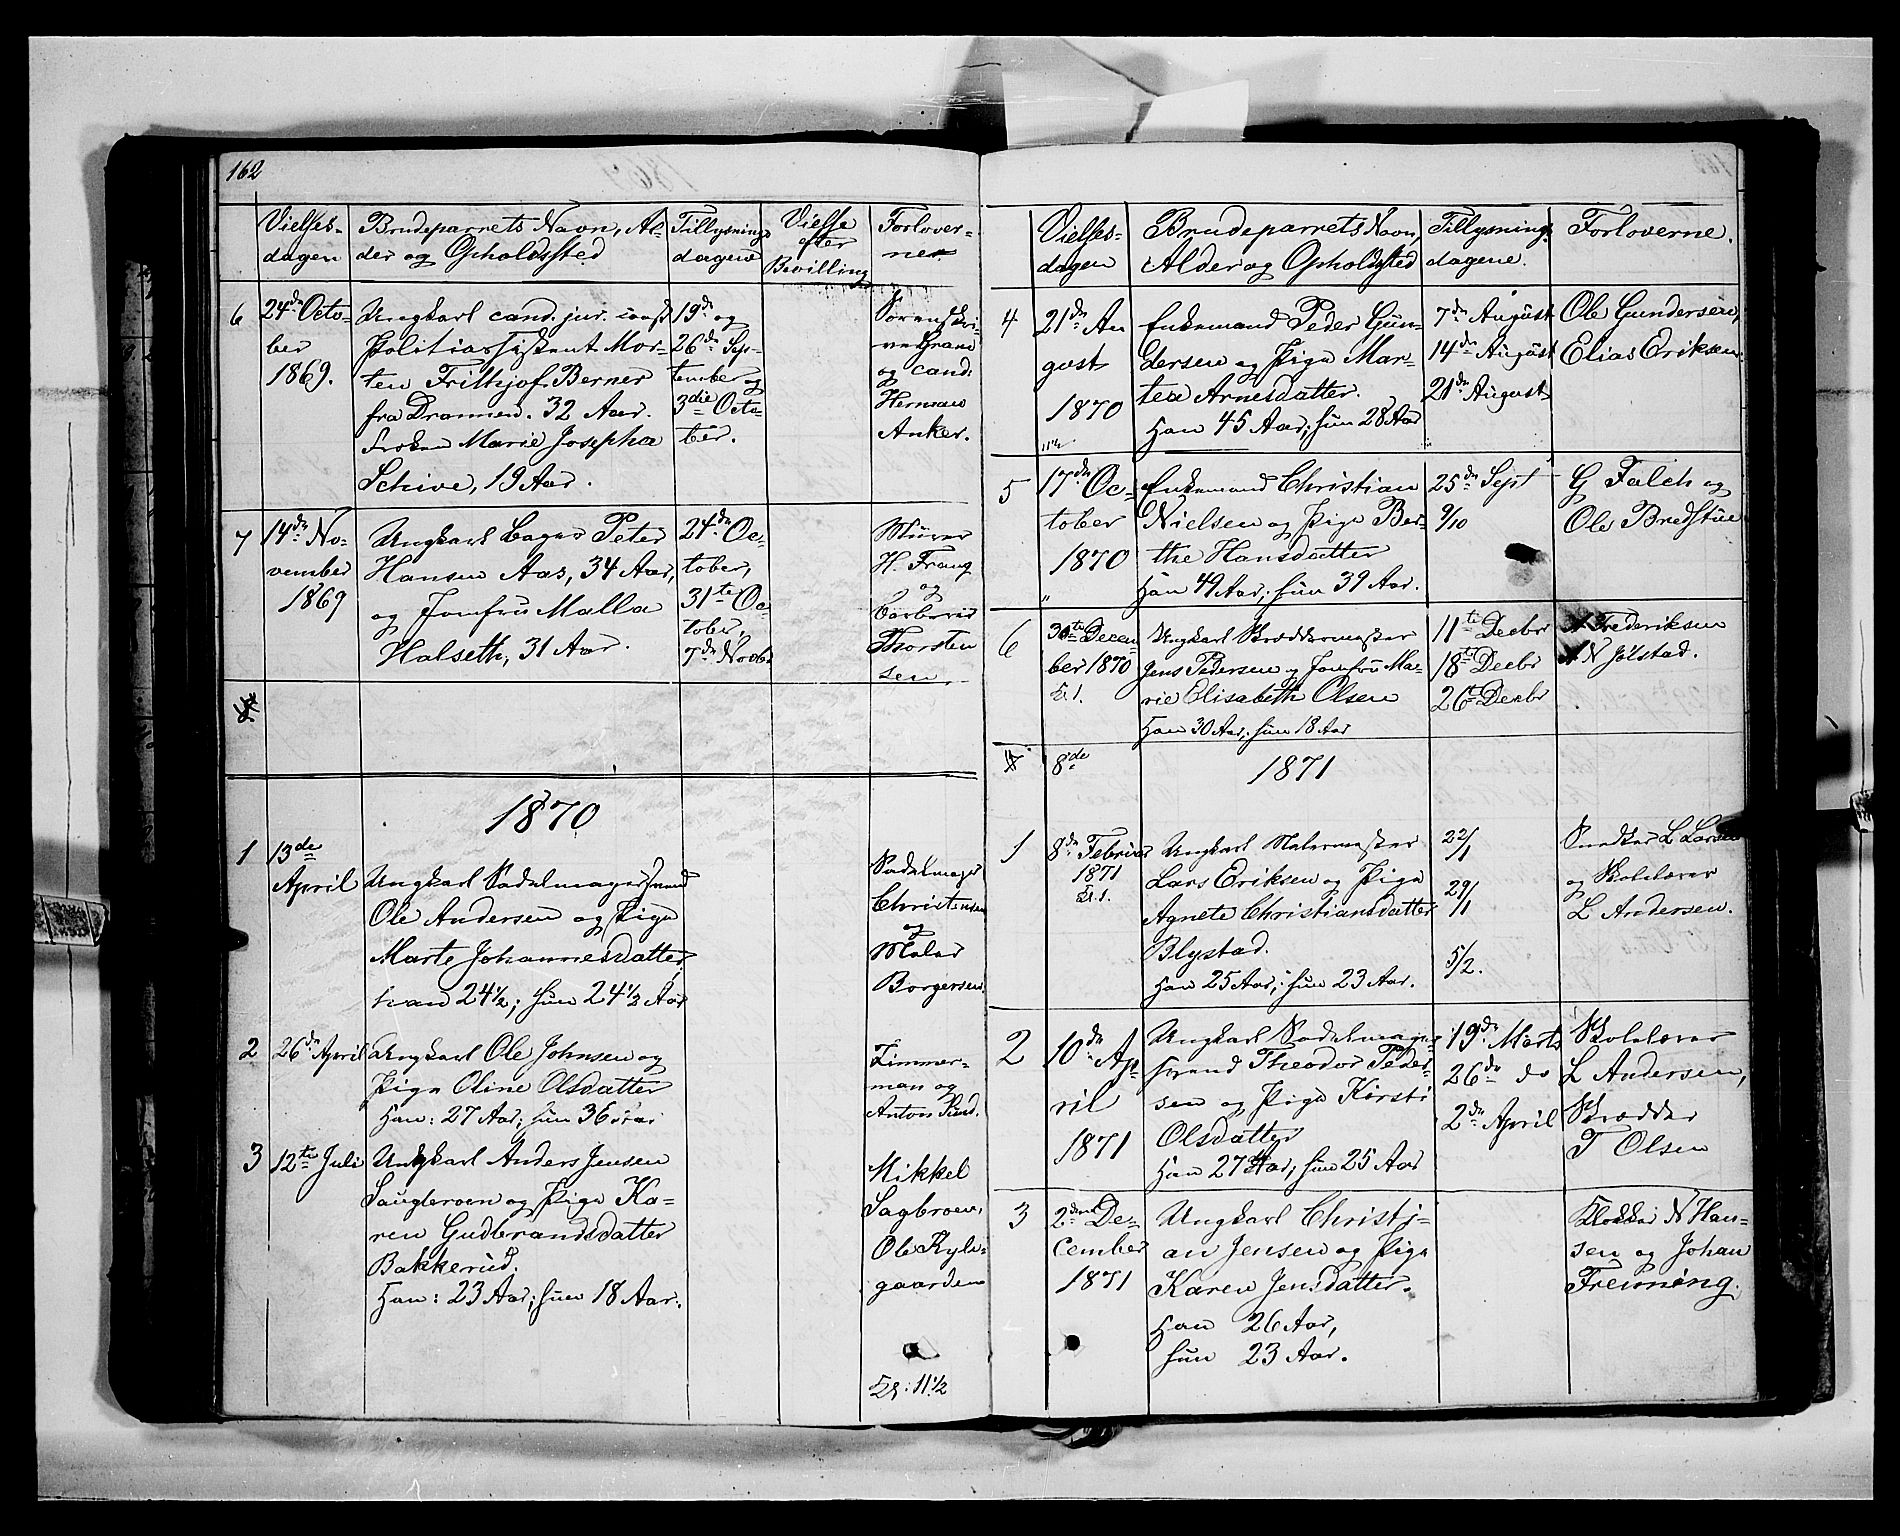 162
Vielses-
dagen
Brudeparrets Navn, Al-
der og Opholdssted
Tillysnings
dagene
Vielse
efter
Bevilling
Forlover-
ne
6
24de Octo-
ber
1869.
Ungkarl cand. jur. const
Politiassistent Mor-
ten Frithjof Berner
fra Drammen. 32 Aar.
Frøken Marie Josepha
Schive, 19 Aar.
19de og
26de Sep-
tember og
3die Octo-
ber.
Sorenskri-
ver
og cand.
Herman
Anker.
7
14de No-
vember
1869
Ungkarl Bager Peter
Hansen Aas, 34 Aar,
og Jomfru Malla
Halseth, 31 Aar.
24de Oc-
tober,
31te Oc
tober,
7de Novbr
Murer
H. Frang
og
Garber
Thorsten
sen
1870
1
13de
April
Ungkarl Sadelmagersvend
Ole Andersen og Pige
Marte Johannesdatter
han 24½; hun 24½ Aar
Sadelmager
Christensen
og
Maler
Borgersen.
2
26de April
Ungkarl Ole Johnsen og
Pige Oline Olsdatter
Han: 27 Aar; hun 36 Aar
Zimmer-
man og
Anton Lund.
3
12te Juli
Ungkarl Anders Jensen
Saugbroen og Pige Ka-
ren Gudbrandsdatter
Bakkerud.
Han: 23 Aar; hun 18 Aar.
Mikkel
Sagbroen,
Ole Kyln-
gaarden
Kl: 11½
Vielses-
dagen
Brudeparrets Navn,
Alder og Opholdssted
Tillysnings
dagene.
Forloverne.
4
21de Au
gust
1870
Enkemand Peder Gun-
dersen og Pige Mar-
tea Arnesdatter.
Han 45 Aar; hun 28 Aar
7de August
14de August
21de August
Ole Gundersen,
Elias Eriksen.
5
17de Oc-
tober
1870
"
Enkemand Christian
Nielsen og Pige Ber-
the Hansdatter
Han 49 Aar; hun 39 Aar.
25de Sept
9/10
G Falch og
Ole Bredstue
6
30te Decem
ber 1870
Kl. 1.
Ungkarl Skræddermester
Jens Pedersen og Jomfru Ma-
rie Elisabeth Olsen
Han 30 Aar; hun 18 Aar
11te Decbr
18te Decbr
26te Decbr
A Frederiksen
A N Jølstad.
8de
1871
1
8de Februar
1871
Kl. 1.
Ungkarl Malermester
Lars Eriksen og Pige
Agnete Christiansdatter
Blystad.
Han 25 Aar; hun 23 Aar.
22/1
29/1
5/2.
Snedker L Larsen
og Skolelærer
L Andersen.
2
10de Ap
ril
1871
Ungkarl Sadelmager-
svend Theodor Peder-
sen og Pige Kersti
Olsdatter
Han 27 Aar; hun 25 Aar
19de Marts
26de do
2de April
Skolelærer
L Andersen,
Skrædder
T Olsen
3
2den De-
cember
1871
Ungkarl Christi-
an Jensen og Pige
Karen Jensdatter.
Han 26 Aar,
hun 23 Aar.
Klokker N Han-
sen og Johan